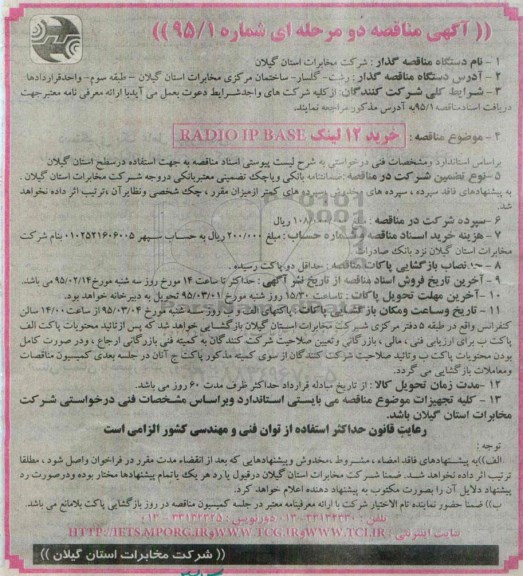 (( آگهی مناقصه دو مرحله ای شماره ۹۵/۱ ))
۱ - نام دستگاه مناقصه گذار : شرکت مخابرات استان گیلان
۲ - آدرس دستگاه مناقصه گذار : رشت- گلسار- ساختمان مرکزی مخابرات استان گیلان – طبقه سوم- واحدقراردادها
۳ - شرایط کلی شرکت کنندگان: ازکلیه شرکت های واجدشرایط دعوت بعمل می آیدبا ارائه معرفی نامه معتبرجهت
دریافت اسنادمناقصه ۹۵/۱به آدرس مذکور مراجعه نمایند.
۴ - موضوع مناقصه : خرید ۱۲ لینک RADIO IP BASE
براساس استاندارد ومشخصات فنی درخواستی به شرح لیست پیوستی اسناد مناقصه به جهت استفاده درسطح استان گیلان
۵ -نوع تضمین شرکت در مناقصه: ضمانتنامه بانکی ویاچک تضمینی معتبربانکی دروجه شرکت مخابرات استان گیلان .
به پیشنهادهای فاقد سپرده ، سپرده های مخدوش ، سپرده های کمتر ازمیزان مقرر ، چک شخصی ونظایر آن ،ترتیب اثر داده نخواهد
شد.
۶ -سپرده شرکت در مناقصه : ریال
۷ - هزینه خرید اسناد مناقصه وشماره حساب : مبلغ ۲۰۰/۰۰۰ ریال به حساب سپهر ۰۱۰۲۵۲۱۶۰۶۰۰۵ بنام شرکت
مخابرات استان گیلان نزد بانک صادرات
۸ - حد نصاب بازگشایی پاکات مناقصه : حداقل دو پاکت رسیده .
۹ - آخرین تاریخ فروش اسناد مناقصه از تاریخ نشر آگهی : حداکثر تا ساعت ۱۴ مورخ روز سه شنبه مورخ ۹۵/۰۲/۱۴ می باشد.
۱۰ -آخرین مهلت تحویل پاکات : تاساعت ۱۵/۳۰ روز شنبه مورخ ۹۵/۰۳/۰۱ تحویل به دبیرخانه خواهد بود.
۱۱ - تاریخ وساعت ومکان بازگشایی پاکات : پاکتهای الف و ب روز سه شنبه مورخ ۹۵/۰۳/۰۴ از ساعت ۱۴/۰۰ سالن
کنفرانس واقع در طبقه ۵ دفتر مرکزی شرکت مخابرات استان گیلان بازگشایی خواهد شد که پس ازتائید محتویات پاکت الف
پاکت ب برای ارزیابی فنی ، مالی ، بازرگانی وتعیین صلاحیت شرکت کنندگان به کمیته فنی بازرگانی ارجاع ، ودر صورت کامل
بودن محتویات پاکت ب وتائید صلاحیت شرکت کنندگان از سوی کمیته مذکور پاکت ج آنان در جلسه بعدی کمیسیون مناقصات
ومعاملات بازگشایی می گردد.
۱۲ -مدت زمان تحویل کالا : از تاریخ مبادله قرارداد حداکثر ظرف مدت ۶۰ روز می باشد.
۱۳ - کلیه تجهیزات موضوع مناقصه می بایستی استاندارد وبراساس مشخصات فنی درخواستی شرکت
مخابرات استان گیلان باشد.
رعایت قانون حداکثر استفاده از توان فنی و مهندسی کشور الزامی است
توجه :
الف))به پیشنهادهای فاقد امضاء ، مشروط ،مخدوش وپیشنهادهایی که بعد از انقضاء مدت مقرر در فراخوان واصل شود ، مطلقا
ترتیب اثر داده نخواهد شد. ضمنا شرکت مخابرات استان گیلان درقبول یا رد هر یک یاتمام پیشنهادها مختار بوده ودرصورت رد
پیشنهاد دلایل آن را بصورت مکتوب به پیشنهاد دهنده اعلام خواهد کرد.
ب)) ضمنا حضور نماینده تام الاختیار شرکت با ارائه معرفینامه معتبر در جلسه کمیسیون مناقصه در روز بازگشایی پاکت بلامانع می باشد.
تلفن : ۳۳۱۳۲۳۳۰ -۰۱۳ دورنویس : ۳۳۱۳۲۳۲۵ -۰۱۳
سایت اینترنتی : WWW.TCI.IR و WWW.TCG.IR و HTTP://IETS.MPORG.IR
(( شرکت مخابرات استان گیلان ))